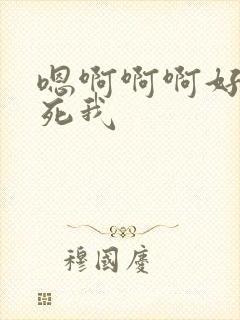 嗯啊啊啊好
死我
穆國慶